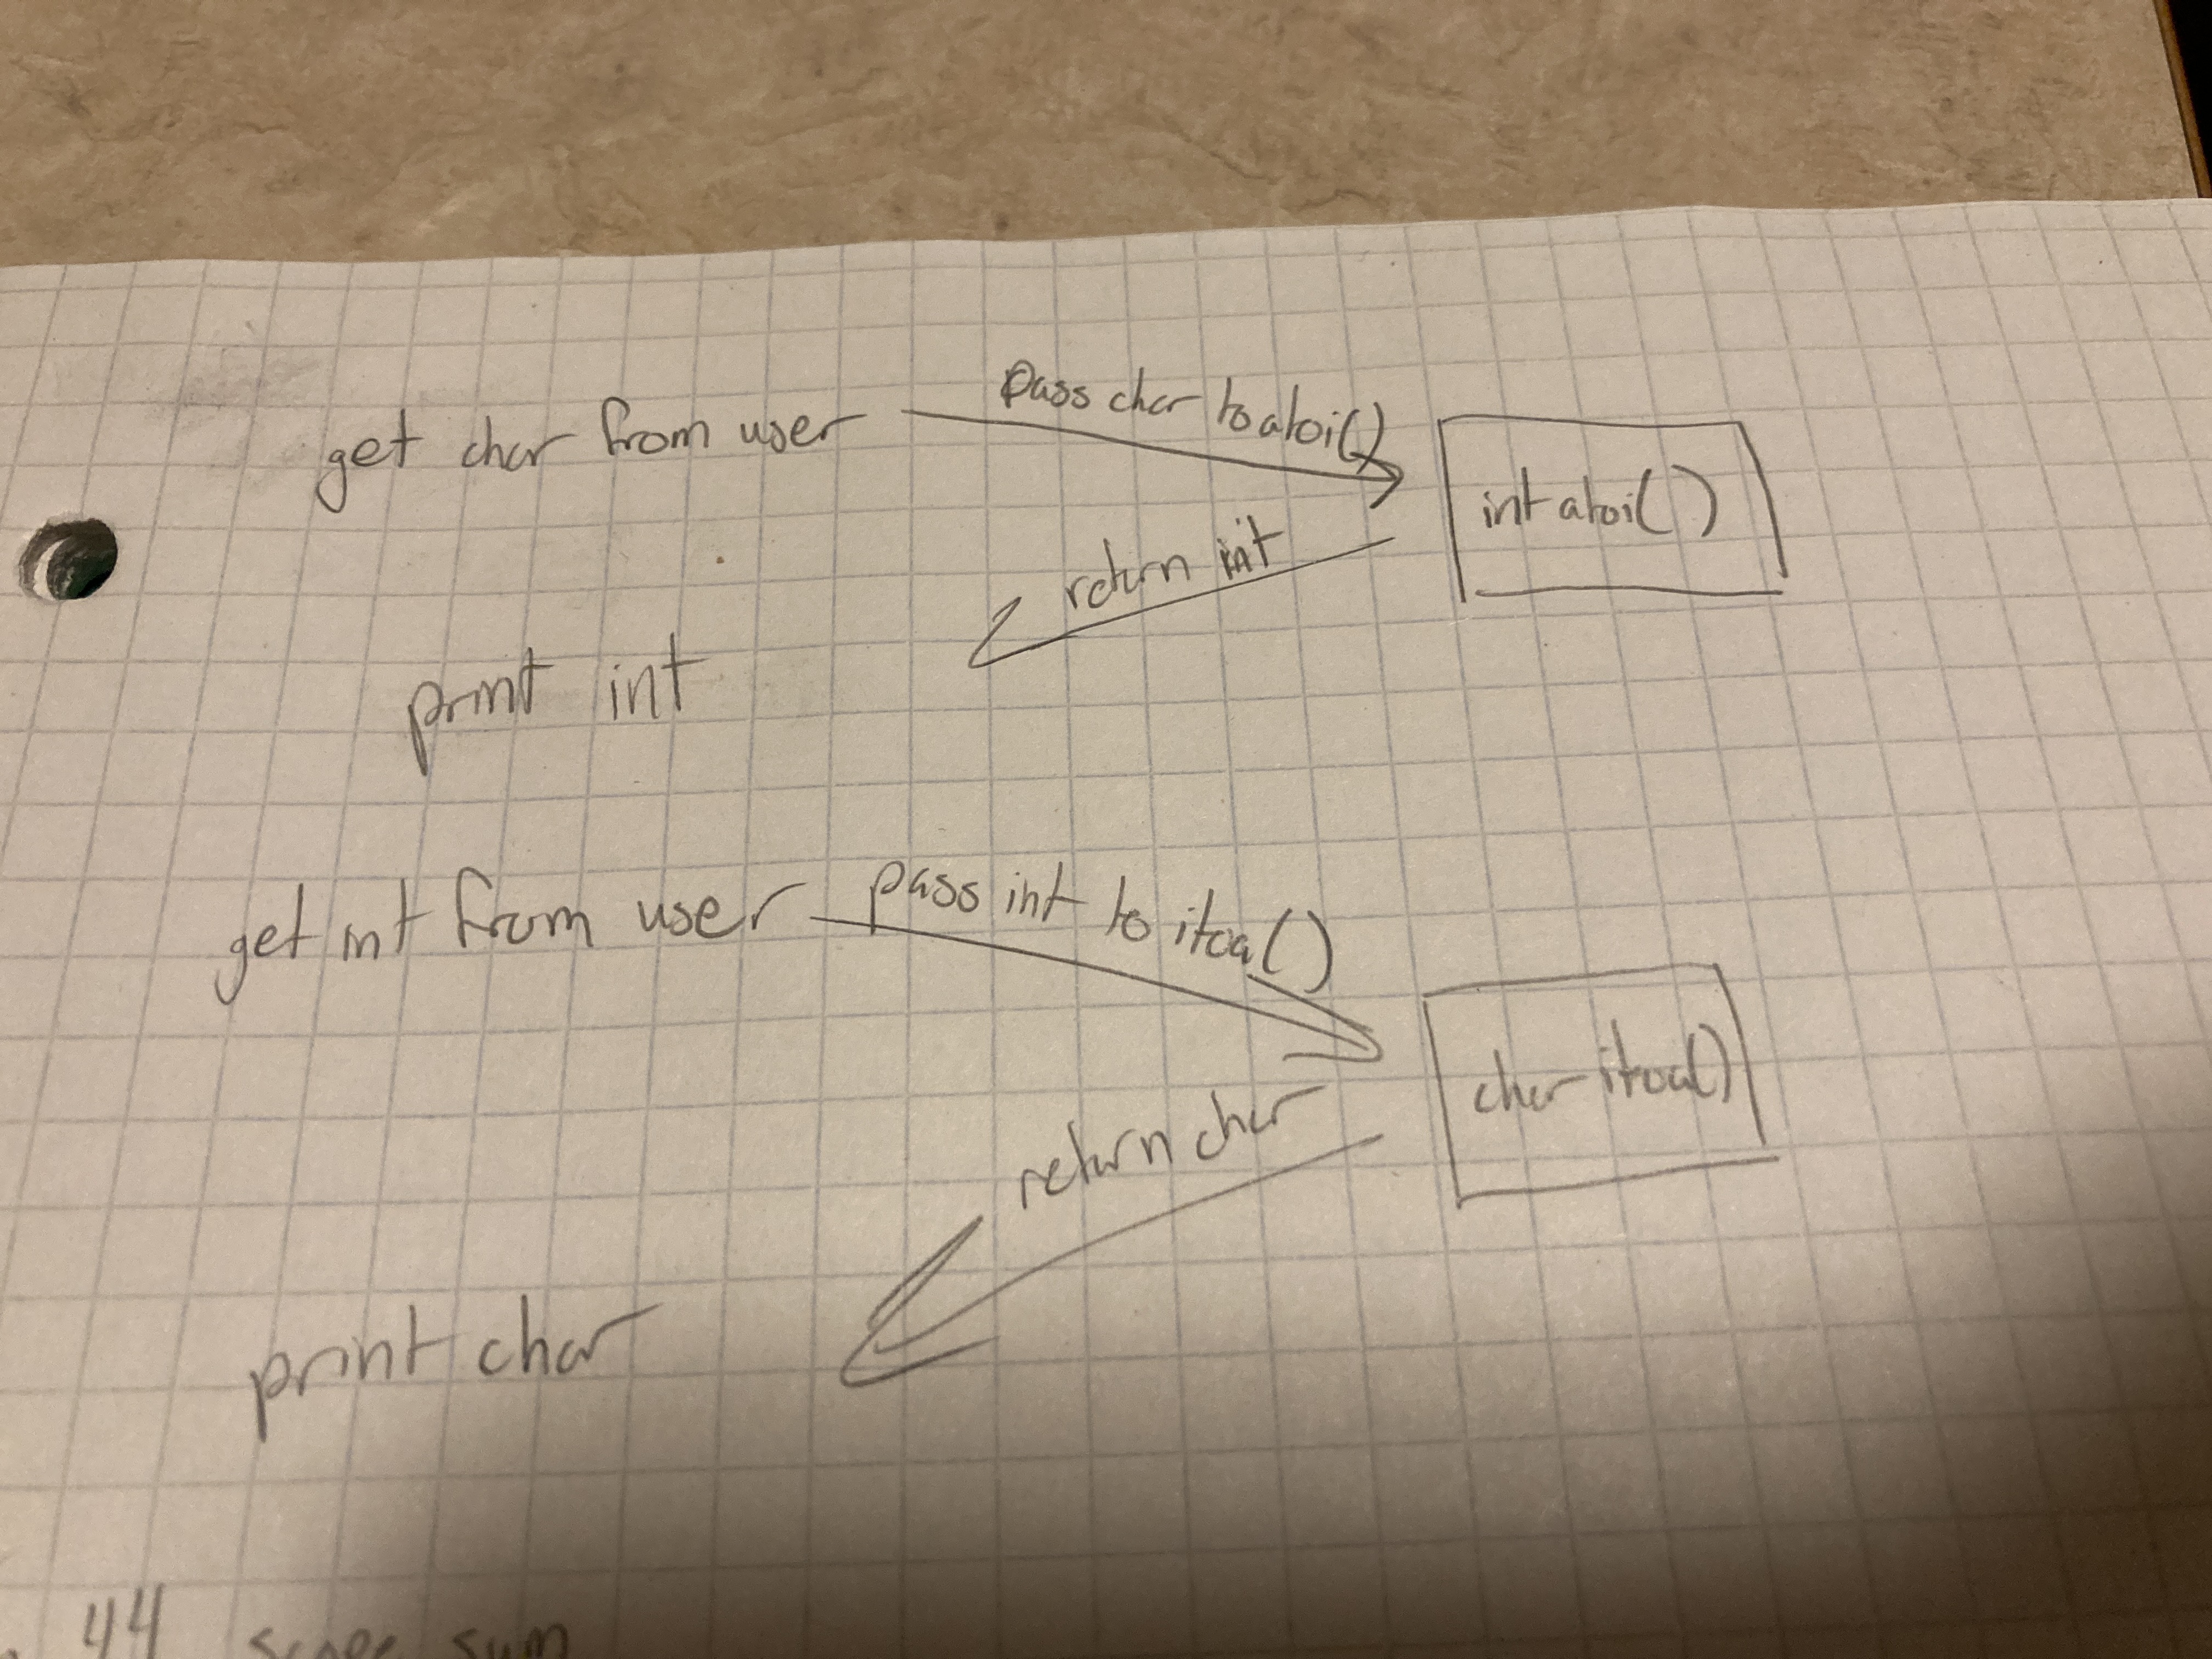 get char from user
pass char to atoi()
int atoi()
return int
print int
get int from user
pass int to itoa()
char itoa()
return char
print char
44